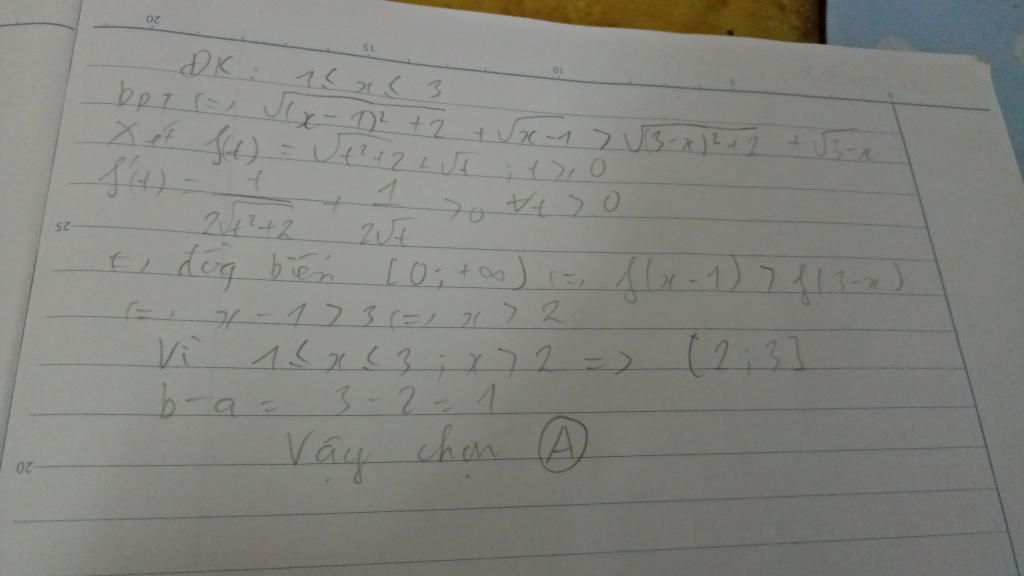 ĐK: 1 ≤ x ≤ 3
bpt (=) √((x-1)² + 2) + √(x-1) > √((3-x)²+2) + √(3-x)
Xét f(t) = √(t²+2) + √t ; t ≥ 0
f'(t) = t/(2√(t²+2)) + 1/(2√t) > 0 ∀t > 0
t, đồg biến [0; +∞) (=) f(x-1) > f(3-x)
(=) x - 1 > 3 (=) x > 2
Vì 1 ≤ x ≤ 3 ; x > 2 => [2;3]
b-a = 3-2 = 1
Vậy chọn Ⓐ
20 15 10 5 0
25
20